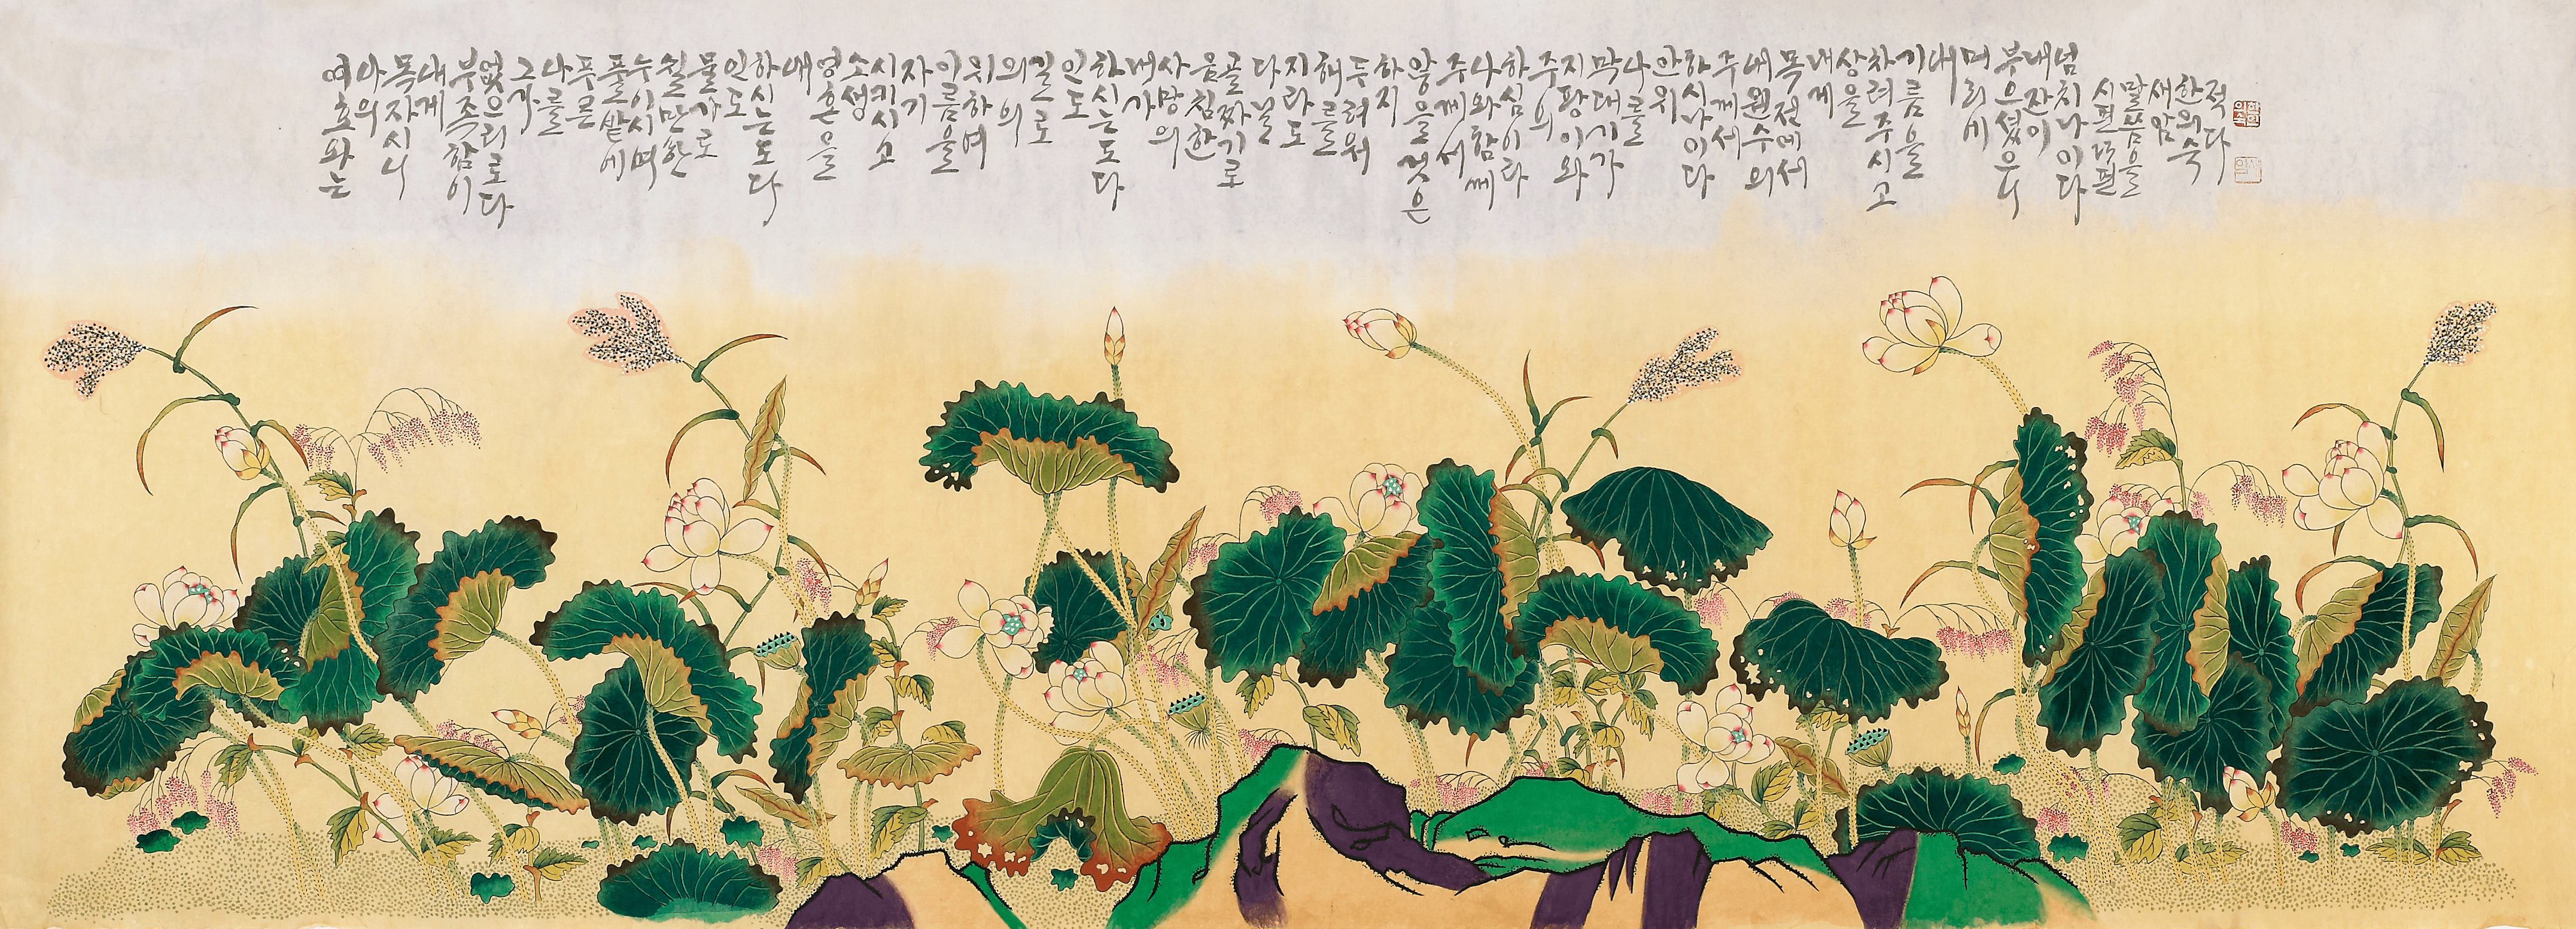 여호와는
나의
목자시니
내게
부족함이
없으리로다
그가
나를
푸른
풀밭에
누이시며
쉴만한
물가로
인도
하시는도다
내
영혼을
소생
시키시고
자기
이름을
위하여
의의
길로
인도
하시는도다
내가
사망의
음침한
골짜기로
다닐
지라도
해를
두려워
하지
않을것은
주께서
나와함께
하심이라
주의
지팡이와
막대기가
나를
안위
하시나이다
주께서
내원수의
목전에서
내게
상을
차려주시고
기름을
내
머리에
부으셨으니
내잔이
넘치나이다
시편23편
말씀을
새암
한의숙
적다